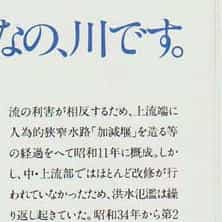 なの、川です。
流の利害が相反するため、上流端に
人為的狭窄水路「加減堰」を造る等
の経過をへて昭和11年に概成。しか
し、中・上流部ではほとんど改修が行
われていなかったため、洪水氾濫は繰
り返し起きていた。昭和34年から第2